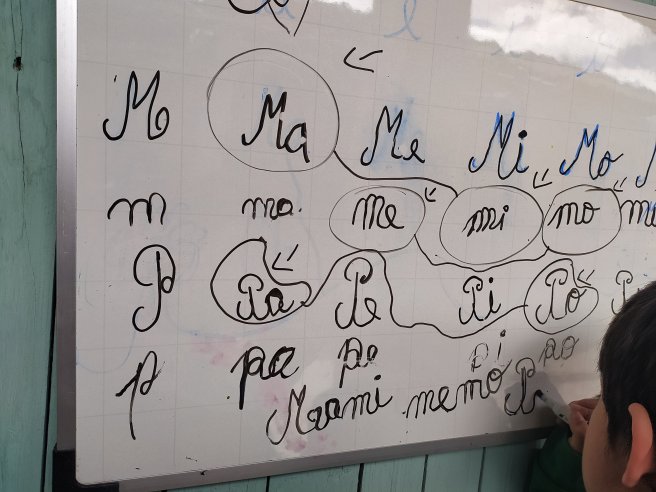 M Ma Me Mi Mo
m ma. me mi mo
P Pa Pe Pi Po
p pa pe pi po
Maami memo P